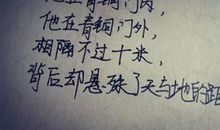 他在青铜门内，
他在青铜门外，
相隔不过十米，
背后却悬殊了天与地的距